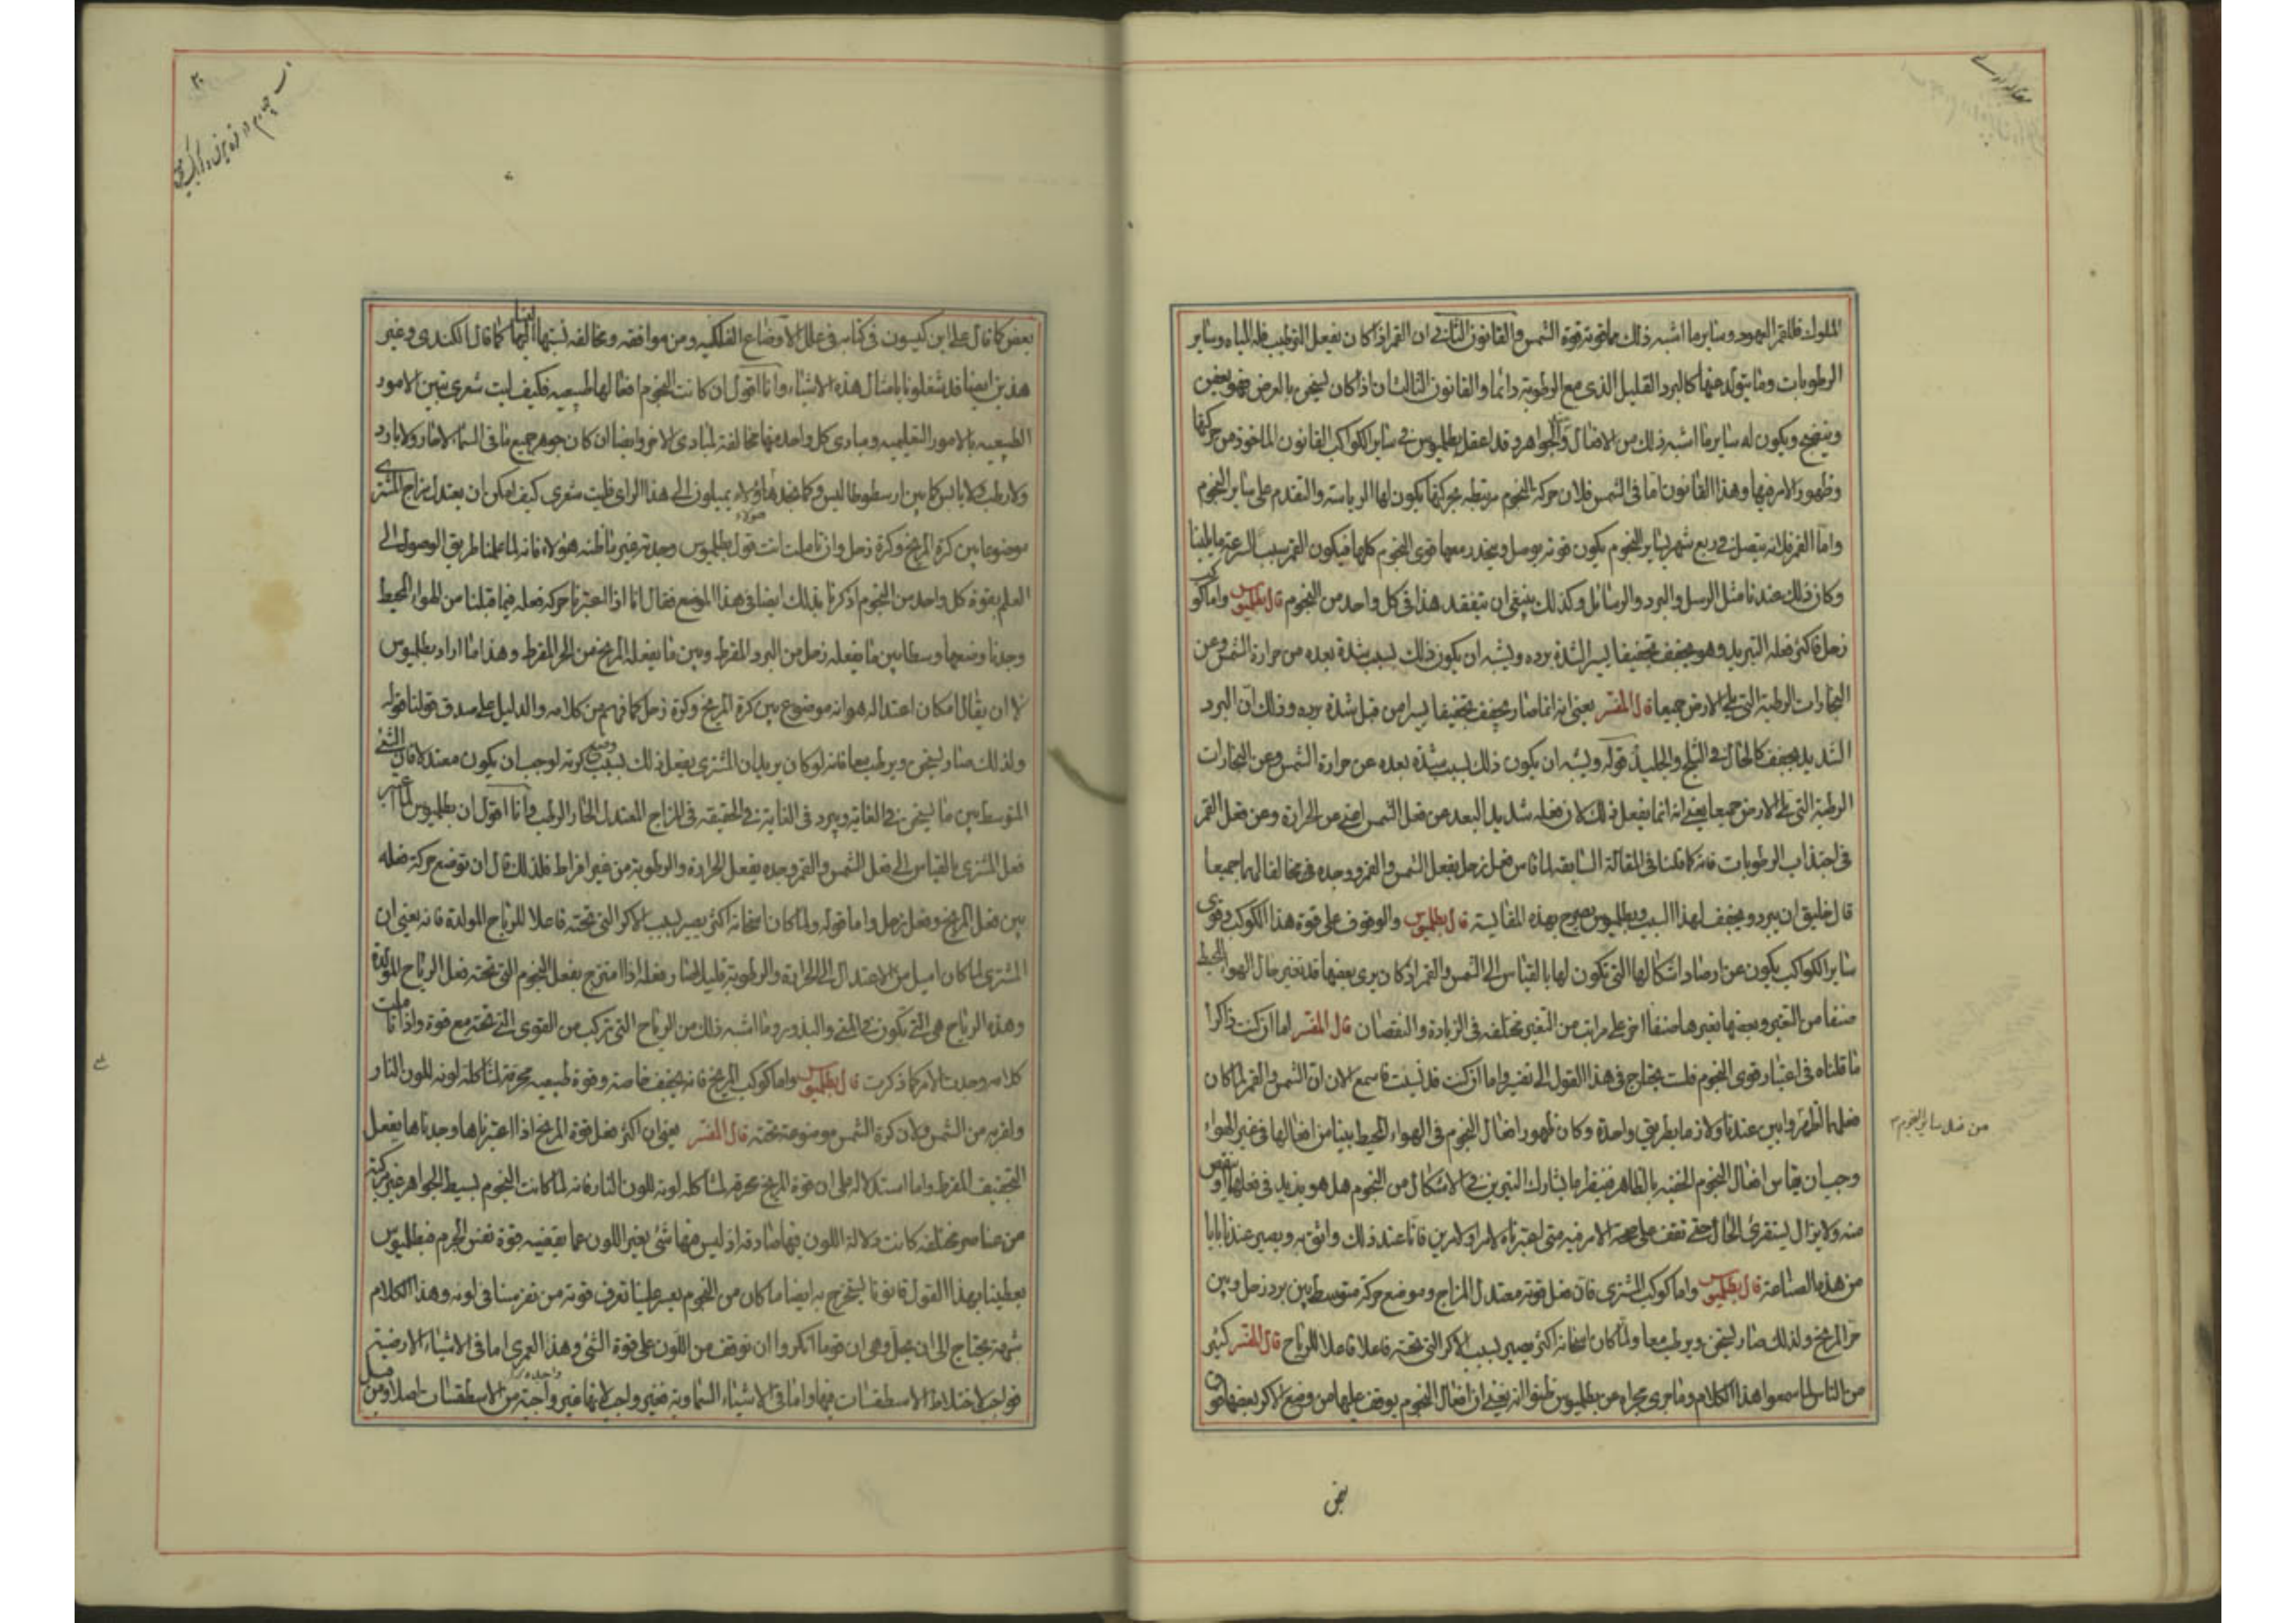 الملوك فللقمر العهود وسایر ما اشبه ذلك مما قوته قوة الشمس والقانون الثانی ان القمر اذا كان یفعل الترطیب فله المیاه وسایر
الرطوبات وما یتولد منها كالبرد القلیل الذی مع الرطوبة دائما والقانون الثالث ان اذا كان یسخن بالعرض فهو یعفن
وینضج ویكون له سایر ما اشبه ذلك من الافعال والجواهر وقد اعقل بطلمیوس فی سایر الكواكب القانون الماخوذ من حركتها
وظهور الامر فیها وهذا القانون اما فی الشمس فلان حركة النجوم مرتبطه بحركتها یكون لها الریاسة والتقدم علی سایر النجوم
واما القمر فلانه یتصل فی ربع شهر بسایر النجوم یكون قوته یوصل وینحدر معها قوی النجوم كلها فیكون القمر بسبب السرعة مما یلینا
وكان ذلك عندنا مثل الرسل والبرد والرسائل وكذلك ینبغی ان یتفقد هذا فی كل واحد من النجوم قال بطلمیوس واما كوكب
زحل فاكثر فعله التبرید وهو یجفف تجفیفا یسیرا لشدة برده ویشبه ان یكون ذلك لسبب شدة بعده من حرارة الشمس وعن
البخارات الرطبة التی علی الارض جمیعا قال المفسر یعنی انه انما صار یجفف تجفیفا یسیرا من قبل شدة برده وذلك ان البرد
الشدید یجفف كالحال فی الثلج والجلید قوله ویشبه ان یكون ذلك لسبب شدة بعده عن حرارة الشمس وعن البخارات
الرطبة التی علی الارض جمیعا یعنی انه انما یفعل ذلك لان فعله شدید البعد من فعل الشمس اعنی من الحرارة وعن فعل القمر
فی اجتذاب الرطوبات فانه كما قلنا فی المقالة السابقه لما قاس فعل زحل بفعل الشمس والقمر وجده مخالفا لهما جمیعا
قال خلیق ان یبرد ویجفف لهذا السبب وبطلمیوس یصرح بهذه المقایسة قال بطلمیوس والوقوف علی قوة هذا الكوكب وقوی
سایر الكواكب یكون عن ارصاد اشكالها التی تكون لها بالقیاس الی الشمس والقمر اذ كان یری بعضها قد تغیر حال الهواء المحیط
صنفا من التغیر وبعضها یغیرها صنفا اخر علی مراتب من التغیر مختلفه فی الزیادة والنقصان قال المفسر اما ان كنت ذاكرا
ما قلناه فی اعتبار قوی النجوم فلست تحتاج فی هذا القول الی تفسیر واما ان كنت قد نسیت فاسمع الان ان الشمس والقمر لما كان
فعلهما اظهر وابین عندنا ولازما بطریق واحدة وكان ظهور افعال النجوم فی الهواء المحیط بینا من افعالها فی غیر الهواء
من فعل سایر النجوم
وجب ان یقاس افعال النجوم الخفیه بالظاهر فینظر ما یشارك النیرین فی الاشكال من النجوم هل هو یزید فی فعلها او ینقص
منه ولا یزال یستقرئ الحال حتی نقف علی صحة الامر فیه متی اعتبرناه لامر او لامرین فانا عند ذلك واثق به ویصیر عندنا بابا
من هذه الصناعة قال بطلمیوس واما كوكب المشتری فان فعل قوته معتدل المزاج وموضع حركته متوسط بین برد زحل وبین
حر المریخ ولذلك صار یسخن ویرطب معا ولما كان اسخانه اكثر یصیر بسبب الاكر التی تحته فاعلا فاعلا للریاح قال المفسر كثیر
من الناس لما سمعوا هذا الكلام وما جری مجراه من بطلمیوس ظنوا انه یعنی ان افعال النجوم یوقف علیها من وضع الاكر بعضها فوق
بعض
بعض كما قال علی ابن كیسون فی كتابه فی علل الاوضاع الفلكیه ومن موافقه ومخالفه نسبتها الیها كما قال الكندی وغیر
هذین ایضا قد شغلونا بامثال هذه الاشیاء وانا اقول ان كانت النجوم افعالها طبیعیه فكیف لیت شعری نبین الامور
الطبیعیه بالامور التعلیمیه ومبادی كل واحده منها مخالفة لمبادی الاخر وایضا ان كان جوهر جمیع ما فی السماء لا حار ولا بارد
ولا رطب ولا یابس كما بین ارسطوطالیس وكما نجد هاؤلاء یمیلون الی هذا الرای فلیت شعری كیف یمكن ان یعتدل مزاج المشتری
موضوعا بین كرة المریخ وكرة زحل وان تاملت انت قول بطلمیوس وجدته غیر ما ظنه هؤلاء فانه لما علمنا طریق الوصول الی
العلم بقوة كل واحد من النجوم اذكرنا بذلك ایضا فی هذا الموضع فقال انا اذا اعتبرنا حركه فعله فیما قبلنا من الهواء المحیط
وجدنا وضعها وسطا بین ما یفعله زحل من البرد المفرط وبین ما یفعله المریخ من الحر المفرط وهذا ما اراد بطلمیوس
لا ان یقال مكان اعتداله هو انه موضوع بین كرة المریخ وكرة زحل كما فهم من كلامه والدلیل علی صدق قولنا قوله
ولذلك صار یسخن ویرطب معا فانه لو كان یرید ان المشتری یفعل ذلك بسبب وضع كرته لوجب ان یكون معتدلا فان الشئ
المتوسط بین ما یسخن فی الغایة ویبرد فی الغایة فی الحقیقة فی المزاج المعتدل الحار الرطب وانا اقول ان بطلمیوس لما اعتبر
فعل المشتری بالقیاس الی فعل الشمس والقمر وجده یفعل الحرارة والرطوبة من غیر افراط فلذلك قال ان توضع حركة فعله
بین فعل المریخ وفعل زحل واما قوله ولما كان اسخانه اكثر یصیر بسبب الاكر التی تحته فاعلا للریاح المولدة فانه یعنی ان
المشتری لما كان امیل من الاعتدال الی الحرارة والرطوبة قلیلا صار فعله اذا امتزج بفعل النجوم التی تحته فعل الریاح المولدة
وهذه الریاح هی التی تكون فی المنی والبذور وما اشبه ذلك من الریاح التی تركب من القوی التی تحته مع قوة واذا تاملت
كلامه وجدت الامر كما ذكرت قال بطلمیوس واما كوكب المریخ فانه یجفف خاصته وقوة طبیعیه محرقة لمشاكلة لونه للون النار
ولقربه من الشمس ولان كرة الشمس موضوعة تحته قال المفسر یعنی ان اكثر فعل قوة المریخ اذا اعتبرناها وجدناها یفعل
التجفیف المفرط واما استدلاله علی ان قوة المریخ محرقه لمشاكله لونه للون النار فانه لما كانت النجوم بسیط الجواهر غیر مركبة
من عناصر مختلفه كانت دلالة اللون فیها صادقه اذ لیس منها شئ یغیر اللون عما یقتضیه قوة نفس الجرم فبطلمیوس
یعطینا بهذا القول قانونا لیستخرج به ایضا ما كان من النجوم یعسر علینا تعرف قوته من تفرسنا فی لونه وهذا الكلام
شبهة یحتاج الی ان یحل وهی ان قوما انكروا ان نوقف من اللون علی قوة الشئ وهذا العمری اما فی الاشیاء الارضیة
فواجب لاختلاط الاسطقسات فیها واما فی الاشیاء السماویة فغیر واجب لانها غیر واحدة من الاسطقسات اصلا ومن قبل